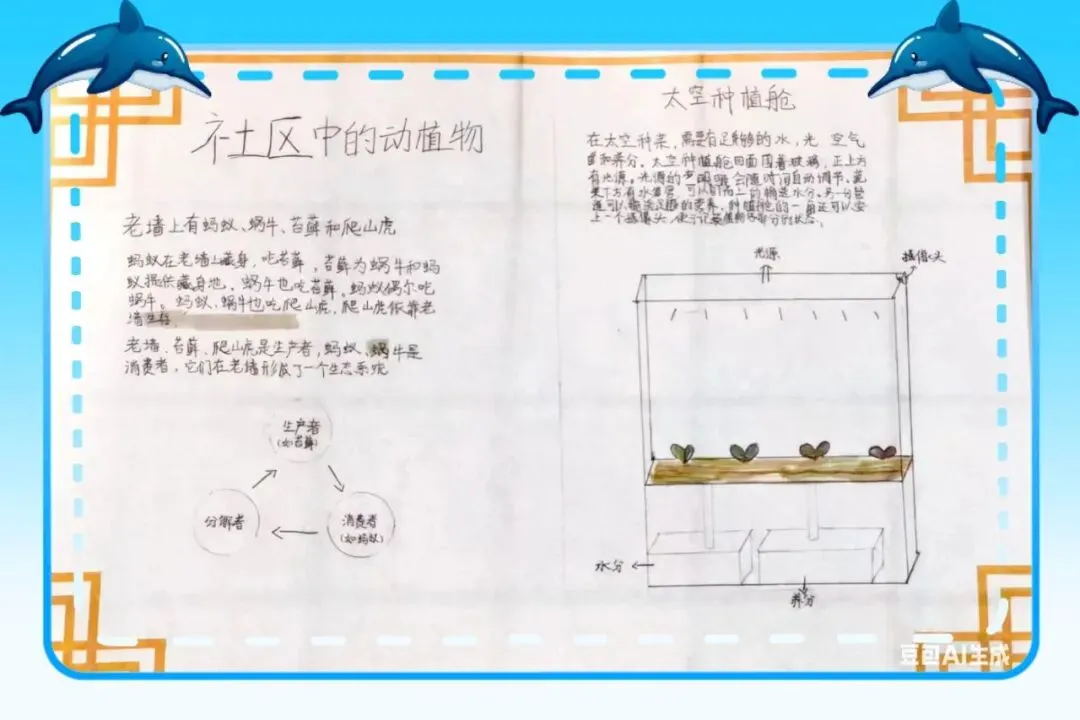 社区中的动植物
老墙上有蚂蚁、蜗牛、苔藓和爬山虎
蚂蚁在老墙上藏身，吃苔藓，苔藓为蜗牛和蚂
蚁提供藏身地。蜗牛也吃苔藓。蚂蚁偶尔吃
蜗牛。蚂蚁、蜗牛也吃爬山虎，爬山虎依靠老
墙生长
老墙、苔藓、爬山虎是生产者，蚂蚁、蜗牛是
消费者，它们在老墙形成了一个生态系统
生产者
(如苔藓)
分解者
消费者
(如蚂蚁)
太空种植舱
在太空种菜，需要有足够的水，光 空气
和养分。太空种植舱四面围着玻璃，正上方
有光源。光源的 会随时间自动调节。
下方有水 可以 上 水分。另一分管
道可以 的营养。种植 的一角还可以安
上一个摄像头，
光源
摄像头
水分
养分
豆包AI生成